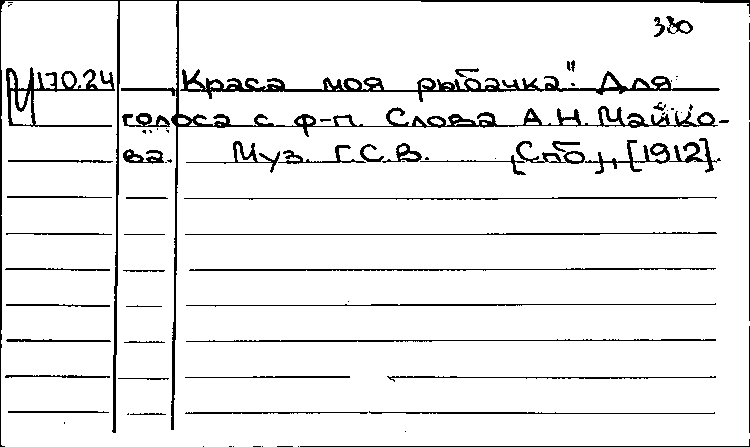 380
М170.24 „Краса моя рыбачка". Для
голоса с ф-п. Слова А.Н. Майко-
ва. Муз. Г.С.В. [Спб], [1912].